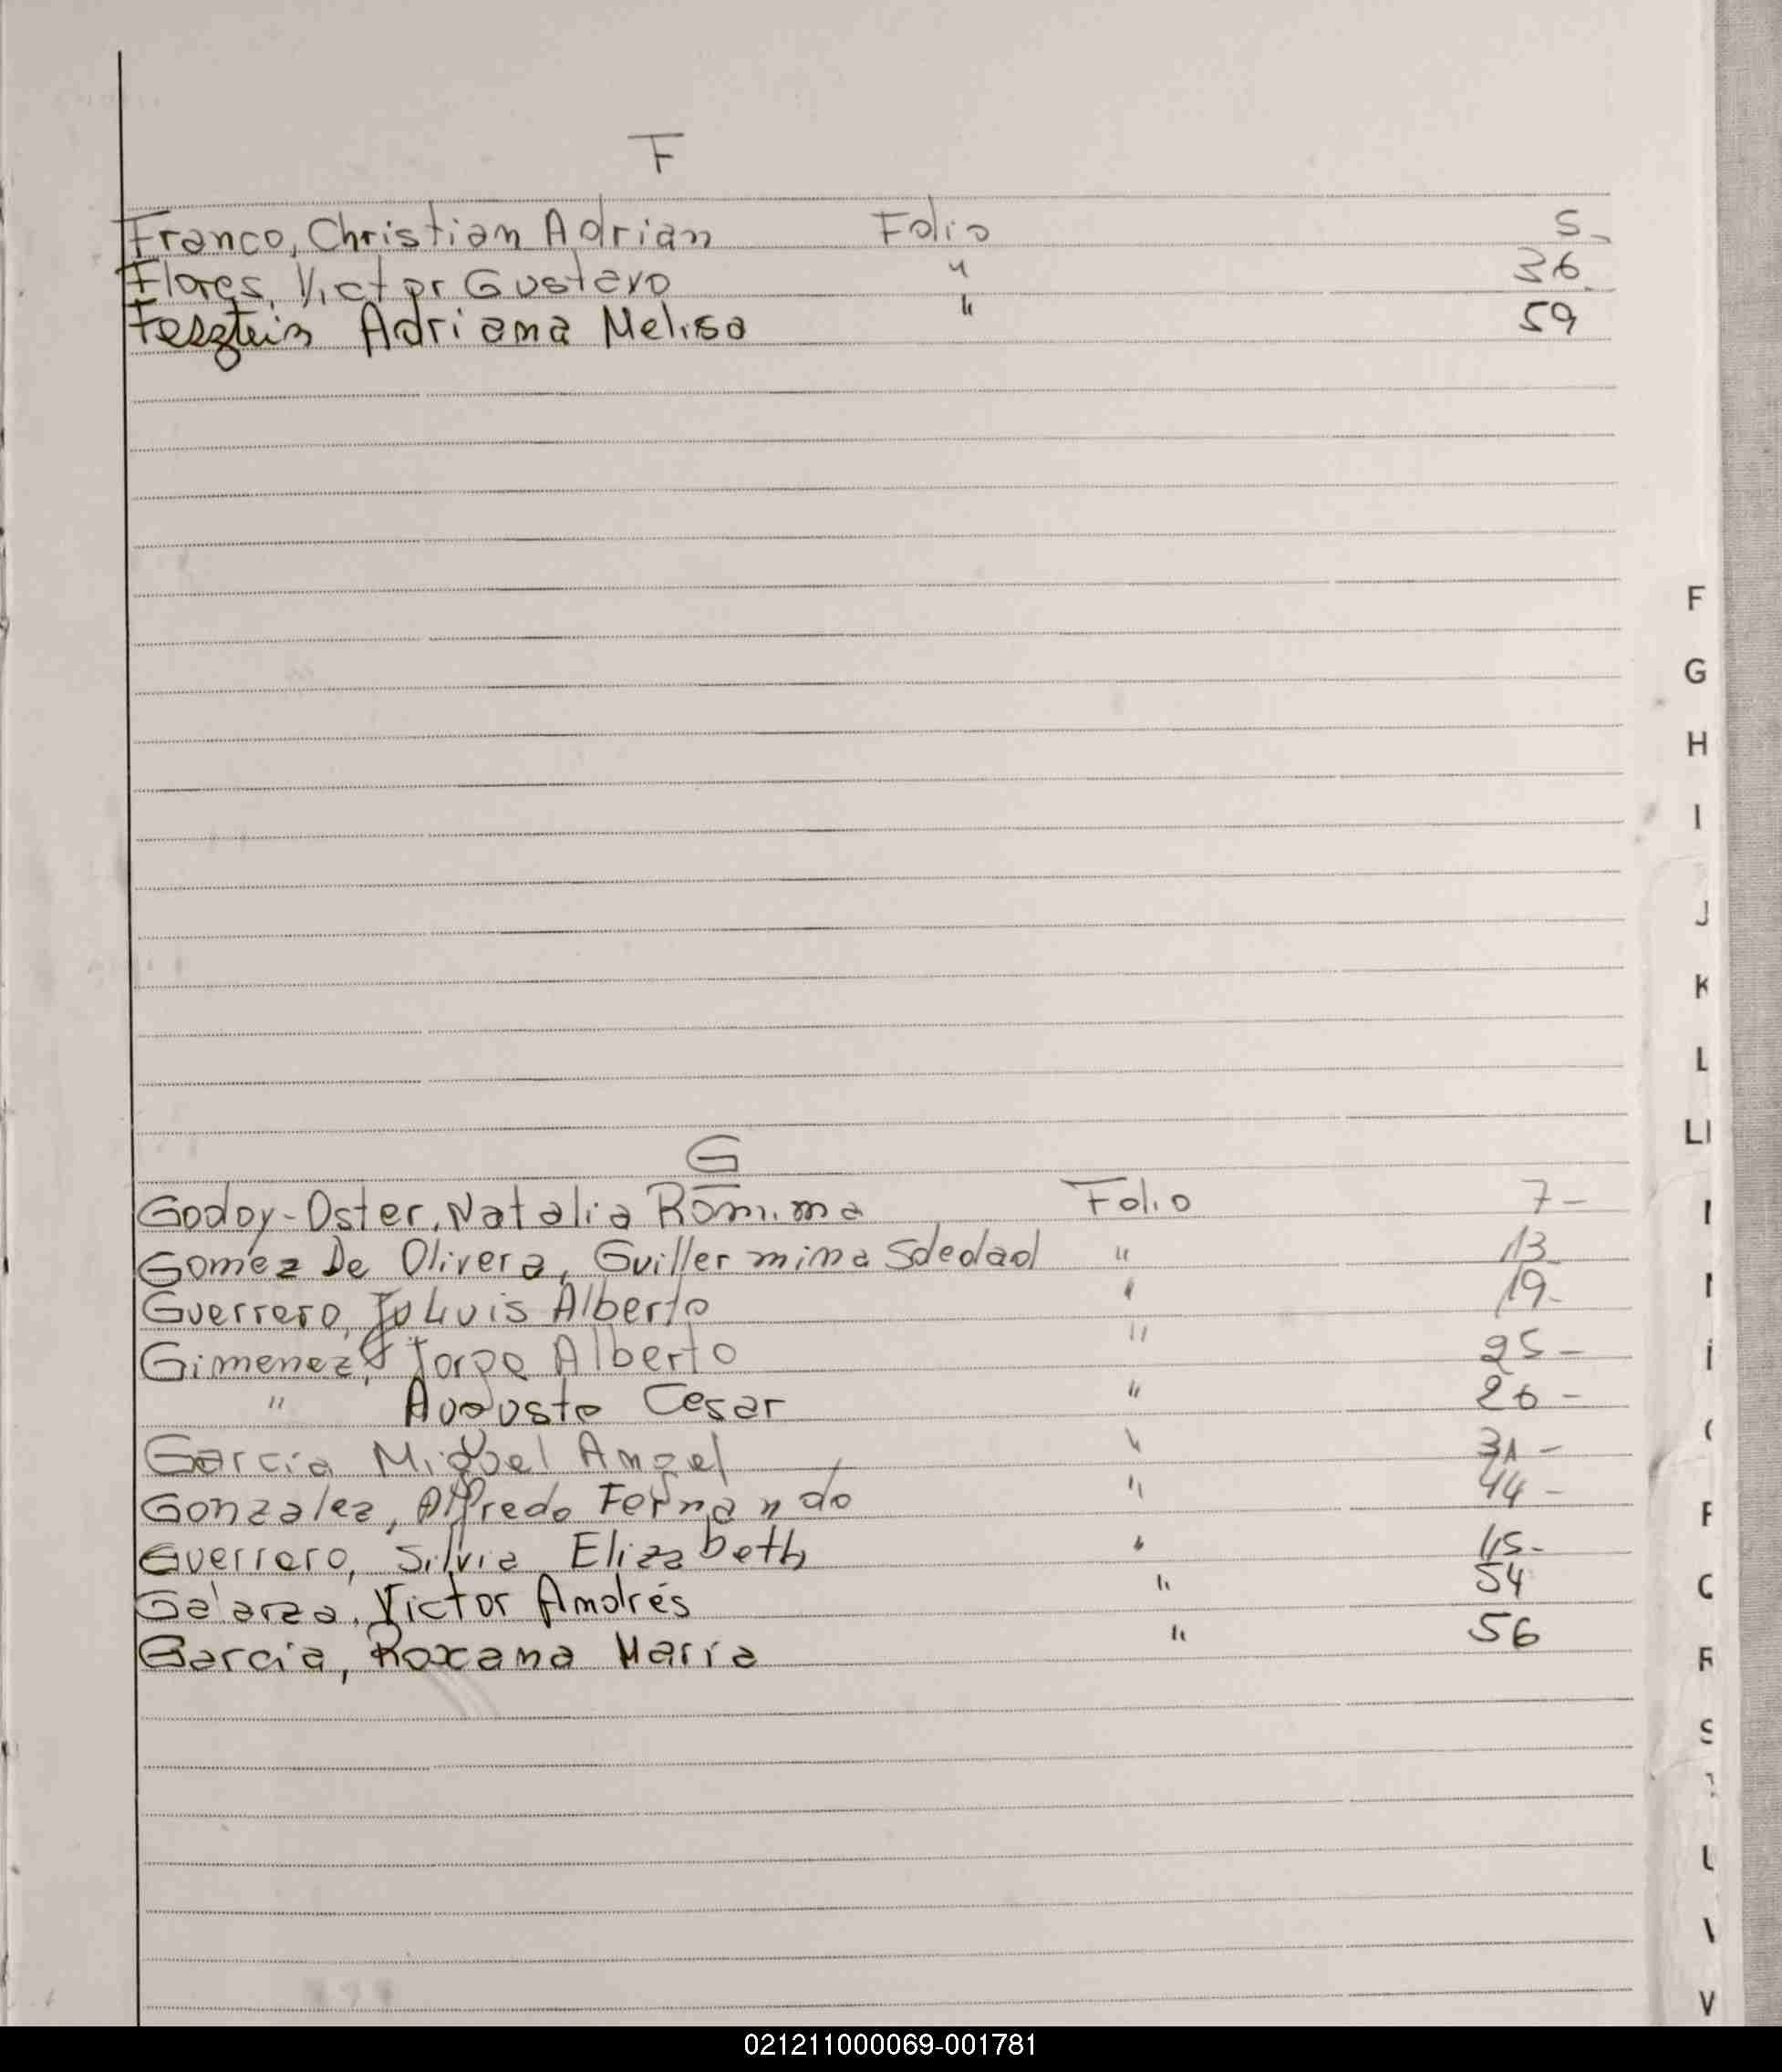 F
Franco, Christian Adrian Folio 5-
Flores, Victor Gustavo " 36
Adriana Melisa " 59
F
G
H
I
J
K
L
Ll
G
Godoy-Oster, Natalia Romina Folio 7-
Gomez De Olivera, Guillermina Soledad " 13
Guerrero, Luis Alberto " 19-
Gimenez, Jorge Alberto " 25-
" Augusto Cesar " 26-
Garcia Miguel Angel " 31-
Gonzalez, Alfredo Fernando " 44-
Guerrero, Silvia Elizabeth " 45-
Galarza, Victor Andrés " 54
Garcia, Roxana María " 56
S
V
021211000069-001781